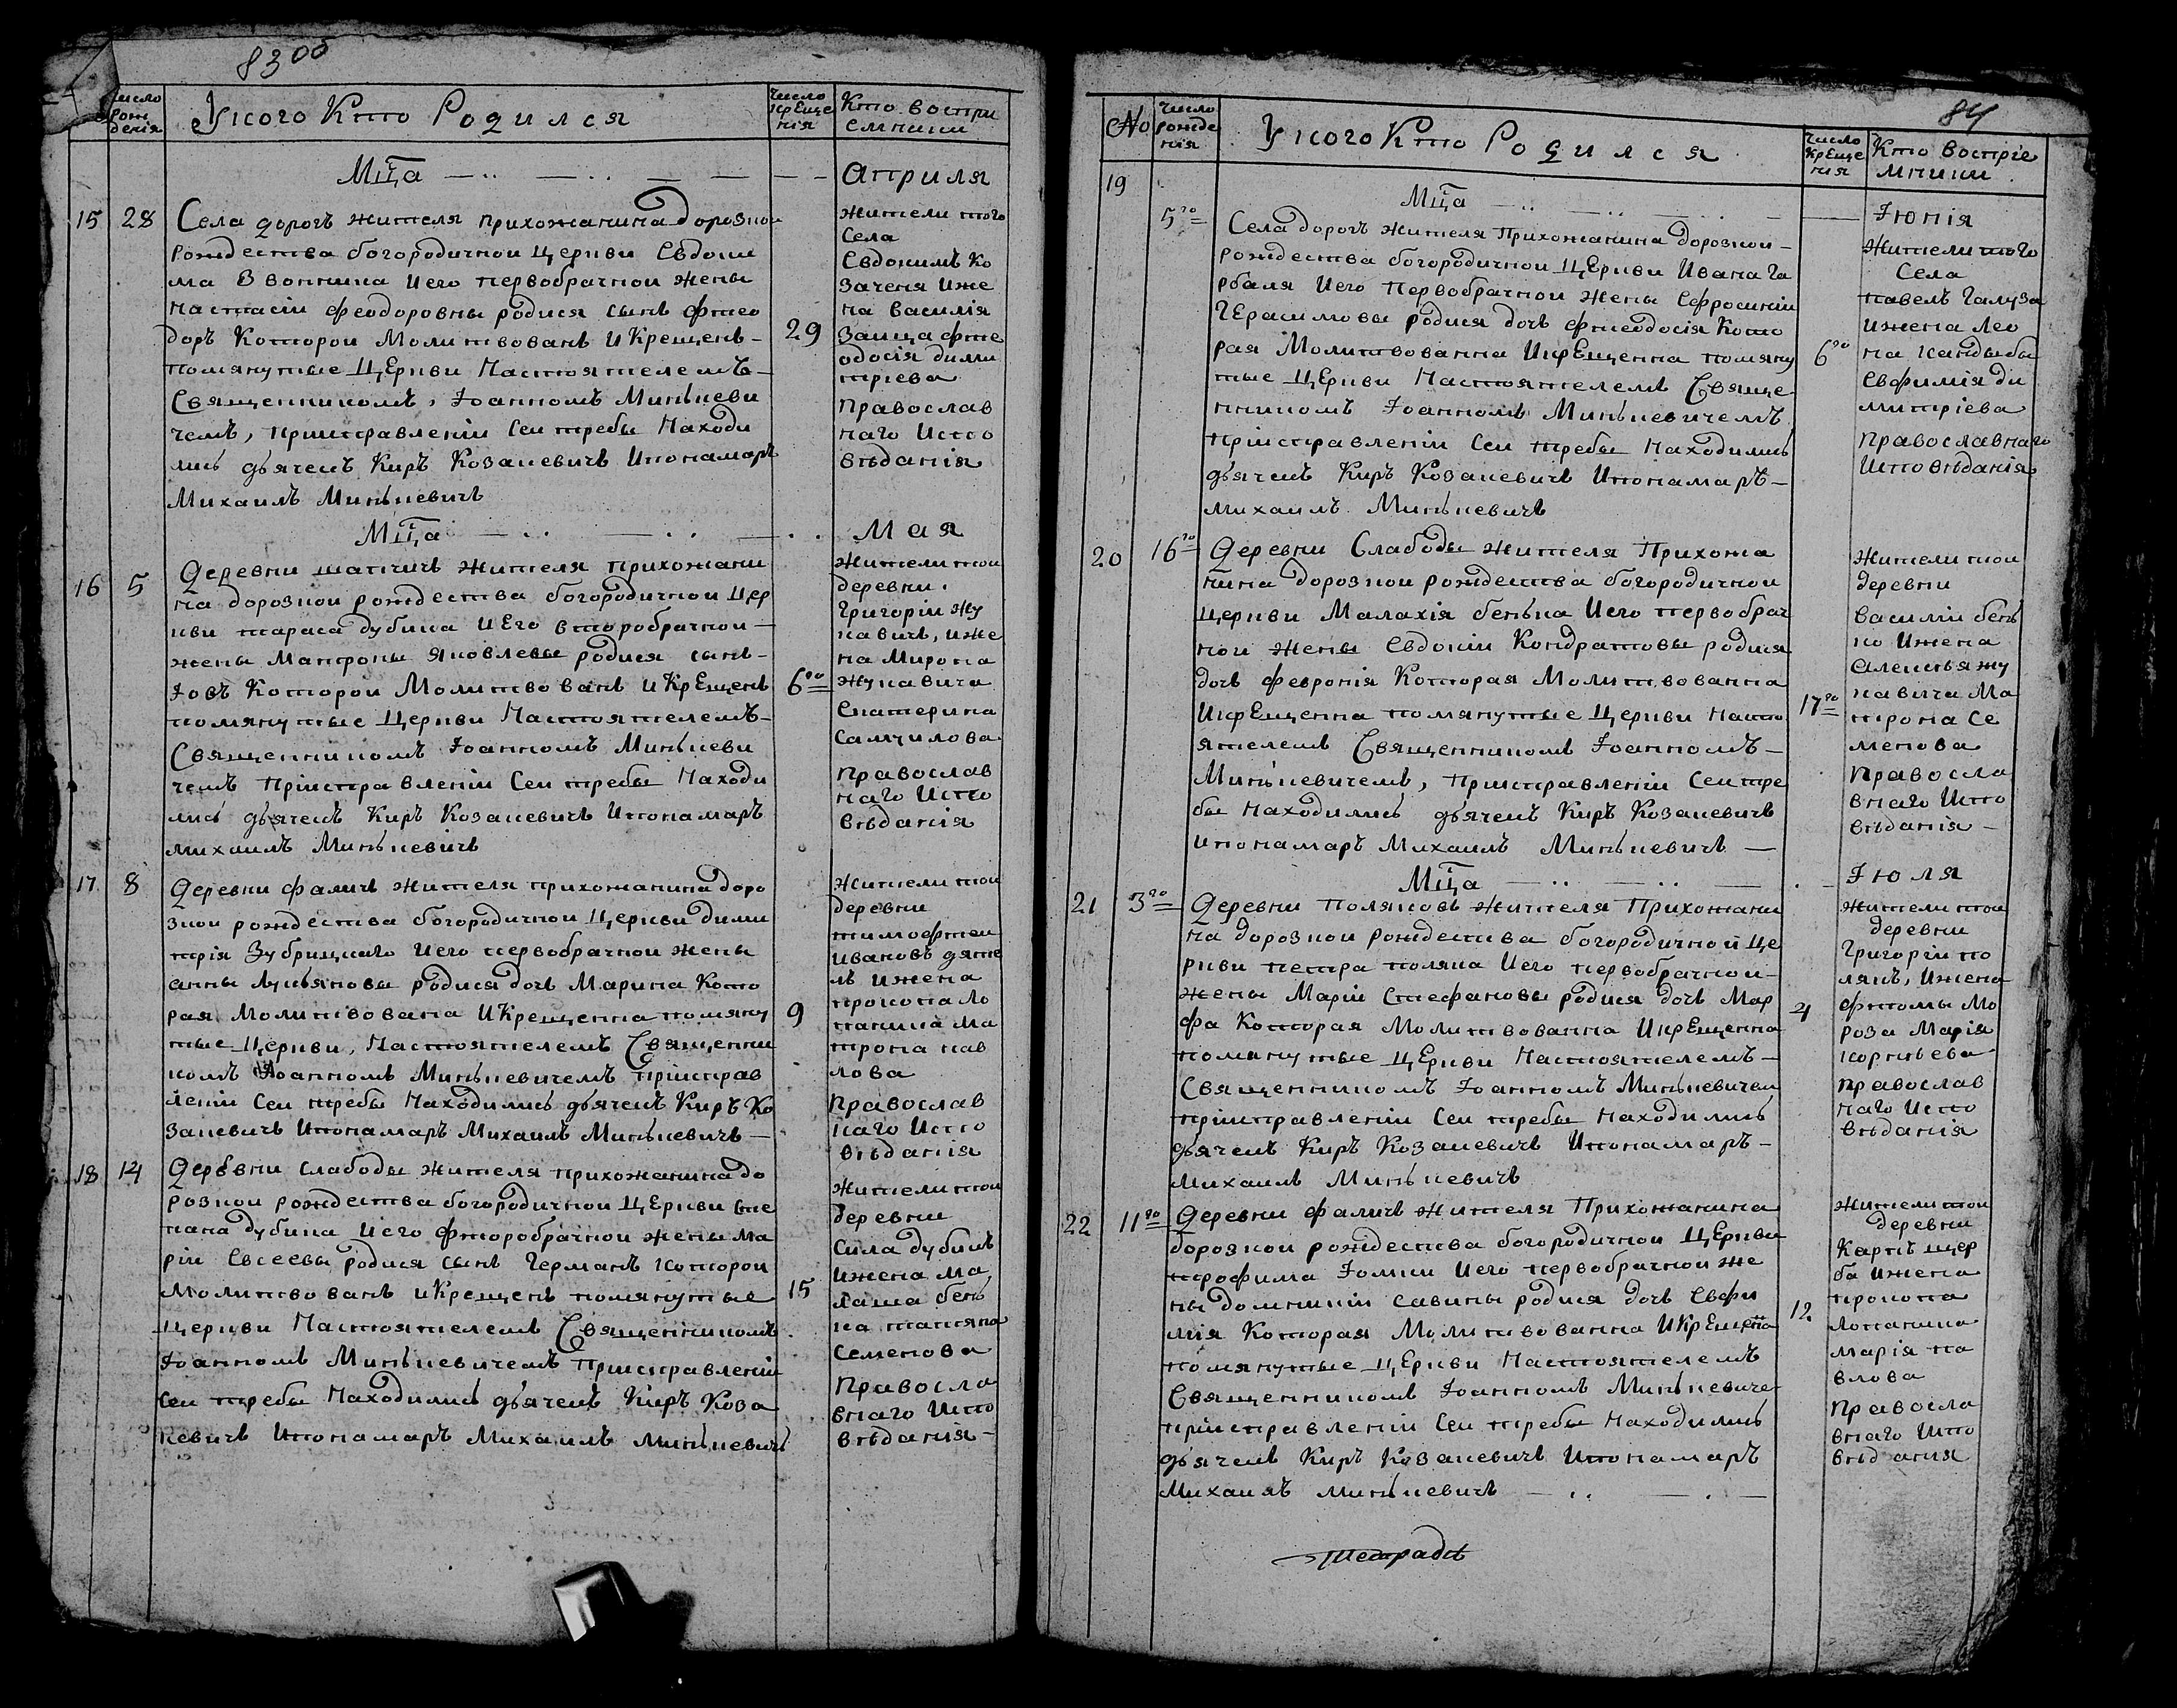 83 об
число рождения
Укого Кто Родился
число крещения
Кто воспри
емники
Мца
Априля
15 28
Села дорогъ жителя прихожанина дорозкои
рождества богородичнои Церкви Евдоки
ма Вонкина Иего первобрачнои жены
Настасіи Феодоровны родися сынъ Фтео
доръ Которои Молитвованъ И Крещенъ
29
помянутые Церкви Настоятелемъ
Священникомъ, Іоанномъ Минькеви
чемъ, приисправленіи Сеи требы Находи
лись дьячекъ Киръ Козакевичъ Ипонамаръ
Михаилъ Минькевичъ
жители того
Села
Евдокимъ Ко
заченя иже
на василія
заица Фте
одосія дими
тріева
православ
наго Испо
вѣданія
Мца
Мая
16 5
Деревни шапчичъ жителя прихожани
на дорозкои рождества богородичнои Цер
кви тараса дубика И Его второбрачнои
жены Матроны Яковлевы родися сынъ
Іовъ Которои Молитвованъ И Крещенъ
6го
помянутые Церкви Настоятелемъ
Священникомъ Іоанномъ Минькеви
чемъ Приисправленіи Сеи требы Находи
лись дьячекъ Киръ Козакевичъ Ипонамаръ
михаилъ Минькевичъ
жители тои
деревни
Григоріи жу
кавичъ, иже
на Мирона
жукавича
Екатерина
Самуилова
православ
наго Испо
вѣданія
17 8
Деревни фаличъ жителя прихожанина доро
зкои рождества богородичнои Церкви дими
трія Зубрицкаго Иего первобрачнои жены
анны Лукьяновы родися дочь Марина Кото
рая Молитвована И Крещенна помяну
9
тые Церкви, Настоятелемъ Священни
комъ Іоанномъ Минькевичемъ приисправ
леніи Сеи требы Находились дьячекъ Киръ Ко
закевичъ Ипонамаръ Михаилъ Минькевичъ
жители тои
деревни
тимофтеи
Ивановъ дяте
лъ ижена
прокопа Ло
пакина Ма
трона пав
лова
православ
наго Испо
вѣданія
18 14
Деревни слабоды жителя прихожанина до
розкои рождества богородичнои Церкви сте
пана дубика Иего фторобрачнои жены Ма
ріи Евсеевы родися сынъ Германъ Которои
Молитвованъ И Крещенъ помянутые
15
Церкви Настоятелемъ Священникомъ
Іоанномъ Минькевичемъ Приисправленіи
Сеи требы Находились дьячекъ Киръ Коза
кевичъ Ипонамаръ Михаилъ Минькевичъ
жители тои
деревни
Сила дубикъ
ижена ма
лаша бень
ка татяна
Семенова
Правосла
внаго Испо
вѣданія
84
No
число рождения
Укого Кто Родился
число Крещения
Кто воспріе
мники
Мца
Іюнія
19 5го
Села дорогъ жителя Прихожанина дорозкои
рождества богородичнои Церкви Ивана Га
рбаля Иего Первобрачнои жены Ефросиніи
Герасимовы родися дочь Фтеодосія Кото
рая Молитвованна Икрещенна помяну
6го
тые Церкви Настоятелемъ Свяще
нникомъ Іоанномъ Минькевичемъ
приисправленіи Сеи требы Находились
дьячекъ Киръ Козакевичъ Ипонамаръ
михаилъ Минькевичъ
жители того
Села
павелъ Галуза
ижена Лео
на кандыбы
Евфимія ди
митріева
православнаго
Исповѣданія
20 16го
Деревни Слабоды жителя Прихожа
нина дорозкои рождества богородичнои
Церкви Малахія бенька Иего первобрач
нои жены Евдокіи Кондратовы родися
дочь февронія Которая Молитвованна
17го
Икрещенна помянутые Церкви Насто
ятелемъ Священникомъ Іоанномъ
Минькевичемъ, Приисправленіи Сеи тре
бы Находились дьячекъ Киръ Козакевичъ
ипонамаръ Михаилъ Минькевичъ
жители тои
деревни
василіи бень
ко Ижена
Алексѣя жу
кавича Ма
трона Се
менова
Правосла
внаго Испо
вѣданія
Мца
Іюля
21 3го
Деревни Поляковъ жителя Прихожани
на дорозкои рождества богородичнои Це
ркви петра поляка Иего первобрачнои
жены Маріи Стефановы родися дочь Мар
фа Которая Молитвованна Икрещенна
4
помянутые Церкви Настоятелемъ
Священникомъ Іоанномъ Минькевичем
приисправленіи Сеи требы Находились
дьячекъ Киръ Козакевичъ Ипонамаръ
Михаилъ Минькевичъ
жители тои
деревни
Григоріи по
лякъ, Ижена
фтомы Мо
роза Марія
корнѣева
православ
наго Испо
вѣданія
22 11го
Деревни фаличъ жителя Прихожанина
дорозкои рождества богородичнои Церкви
трофима Іолкии Иего первобрачнои же
ны домникіи савины родися дочь Евфи
мія Которая Молитвованна И Крещенна
12
помянутые Церкви Настоятелемъ
Священникомъ Іоанномъ Минькевиче
приисправленіи Сеи требы Находились
дьячекъ Киръ Козакевичъ Ипонамаръ
Михаилъ минькевичъ
жители тои
деревни
Карпъ щер
ба ижена
прокопа
лопакина
марія па
влова
правосла
внаго Испо
вѣдания
тетрадь